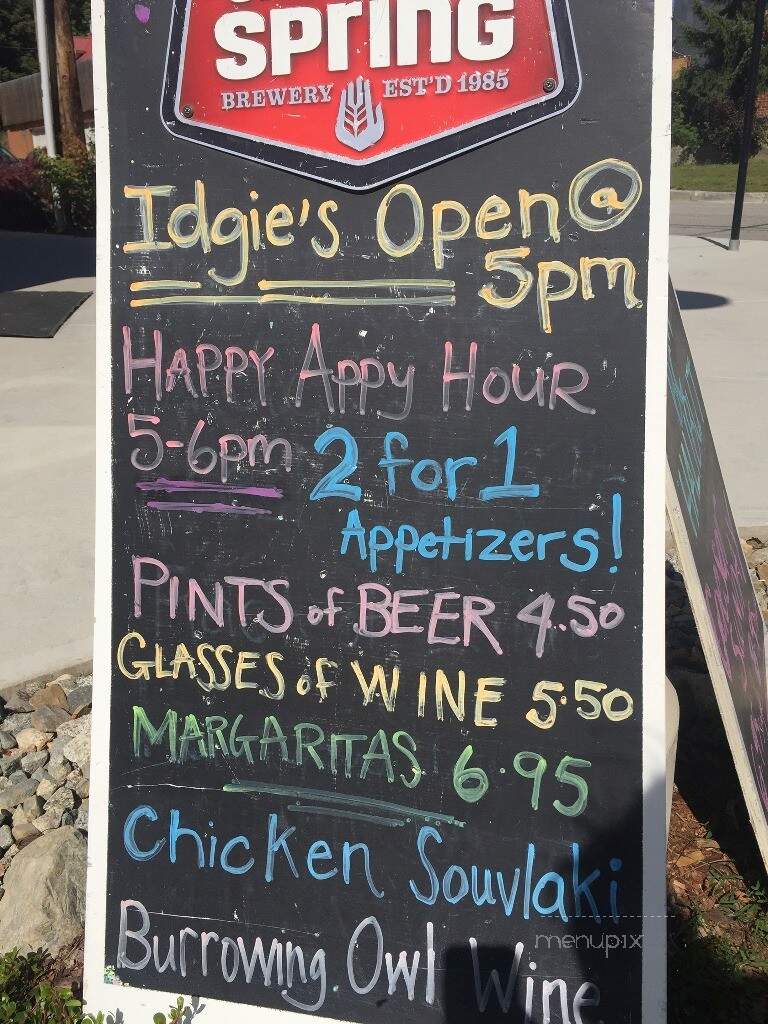 SPrinG
BREWERY EST'D 1985
Idgie's Open @
5pm
HAPPY APPY HOUR
5-6pm 2 for 1
Appetizers!
PINTS of BEER 4.50
GLASSES of WINE 5.50
MARGARITAS 6.95
Chicken Souvlaki
menupix
Burrowing Owl Wine